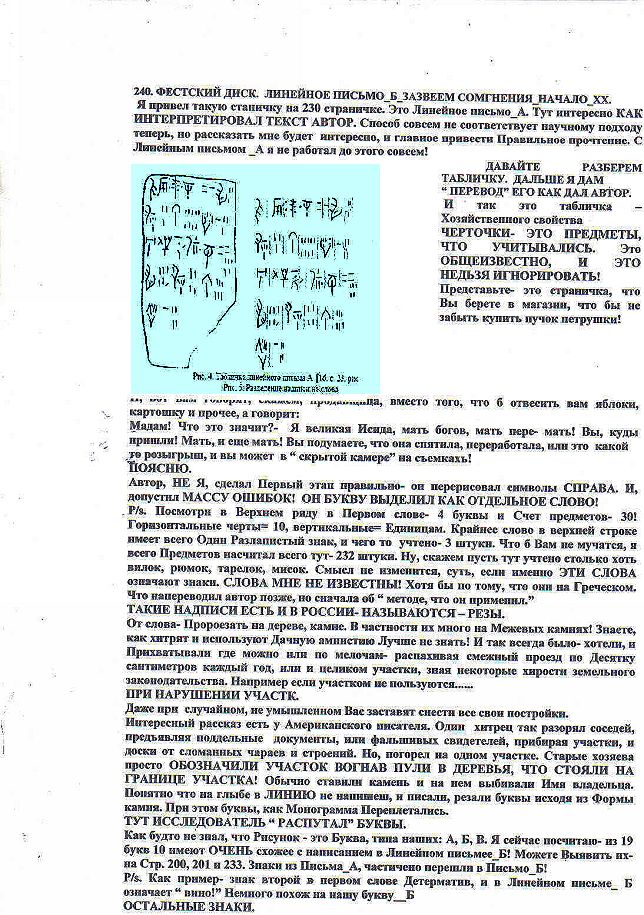 240. ФЕСТСКИЙ ДИСК. ЛИНЕЙНОЕ ПИСЬМО_Б_ЗАЗВЕЕМ СОМГНЕНИЯ_НАЧАЛО_XX.
Я привел такую станичку на 230 страничке. Это Линейное письмо_А. Тут интересно КАК
ИНТЕРПРЕТИРОВАЛ ТЕКСТ АВТОР. Способ совсем не соответствует научному подходу
теперь, но рассказать мне будет интересно, и главное привести Правильное прочтение. С
Линейным письмом _А я не работал до этого совсем!
ДАВАЙТЕ РАЗБЕРЕМ
ТАБЛИЧКУ. ДАЛЬШЕ Я ДАМ
“ ПЕРЕВОД” ЕГО КАК ДАЛ АВТОР.
И так это табличка –
Хозяйственного свойства
ЧЕРТОЧКИ- ЭТО ПРЕДМЕТЫ,
ЧТО УЧИТЫВАЛИСЬ. Это
ОБЩЕИЗВЕСТНО, И ЭТО
НЕДЬЗЯ ИГНОРИРОВАТЬ!
Представьте- это страничка, что
Вы берете в магазин, что бы не
забыть купить пучок петрушки!
Рис. 4. Табличка линейного письма А [16, с. 23, рис
Рис. 5. Разделение надписи на слова
вместо того, что б отвесить вам яблоки,
картошку и прочее, а говорит:
Мадам! Что это значит?- Я великая Исида, мать богов, мать пере- мать! Вы, куды
пришли! Мать, и еще мать! Вы подумаете, что она спятила, переработала, или это какой
то розыгрыш, и вы может в “ скрытой камере” на съемкахь!
ПОЯСНЮ.
Автор, НЕ Я, сделал Первый этап правильно- он перерисовал символы СПРАВА. И,
допустил МАССУ ОШИБОК! ОН БУКВУ ВЫДЕЛИЛ КАК ОТДЕЛЬНОЕ СЛОВО!
P/s. Посмотри в Верхнем ряду в Первом слове- 4 буквы и Счет предметов- 30!
Горизонтальные черты= 10, вертикальные= Единицам. Крайнее слово в верхней строке
имеет всего Один Разлапистый знак, и чего то учтено- 3 штуки. Что б Вам не мучатся, я
всего Предметов насчитал всего тут- 232 штуки. Ну, скажем пусть тут учтено столько хоть
вилок, рюмок, тарелок, мисок. Смысл не изменится, суть, если именно ЭТИ СЛОВА
означают знаки. СЛОВА МНЕ НЕ ИЗВЕСТНЫ! Хотя бы по тому, что они на Греческом.
Что напереводил автор позже, но сначала об “ методе, что он применил.”
ТАКИЕ НАДПИСИ ЕСТЬ И В РОССИИ- НАЗЫВАЮТСЯ – РЕЗЫ.
От слова- Пророезать на дереве, камне. В частности их много на Межевых камнях! Знаете,
как хитрят и используют Дачную амнистию Лучше не знать! И так всегда было- хотели, и
Прихватывали где можно или по мелочам- распахивая смежный проезд по Десятку
сантиметров каждый год, или и целиком участки, зная некоторые хирости земельного
законодательства. Например если участком не пользуются......
ПРИ НАРУШЕНИИ УЧАСТК.
Даже при случайном, не умышленном Вас заставят снести все свои постройки.
Интересный рассказ есть у Американского писателя. Один хитрец так разорял соседей,
предъявляя поддельные документы, или фальшивых свидетелей, прибирая участки, и
доски от сломанных чараев и строений. Но, погорел на одном участке. Старые хозяева
просто ОБОЗНАЧИЛИ УЧАСТОК ВОГНАВ ПУЛИ В ДЕРЕВЬЯ, ЧТО СТОЯЛИ НА
ГРАНИЦЕ УЧАСТКА! Обычно ставили камень и на нем выбивали Имя владельца.
Понятно что на глыбе в ЛИНИЮ не напишеш, и писали, резали буквы исходя из Формы
камня. При этом буквы, как Монограмма Переплетались.
ТУТ ИССЛЕДОВАТЕЛЬ “ РАСПУТАЛ” БУКВЫ.
Как будто не знал, что Рисунок - это Буква, типа наших: А, Б, В. Я сейчас посчитаю- из 19
букв 10 имеют ОЧЕНЬ схожее с написанием в Линейном письмее_Б! Можете Выявить их-
на Стр. 200, 201 и 233. Знаки из Письма_А, частичено перешли в Письмо_Б!
P/s. Как пример- знак второй в первом слове Детерматив, и в Линейном письме_ Б
означает “ вино!” Немного похож на нашу букву__Б
ОСТАЛЬНЫЕ ЗНАКИ.